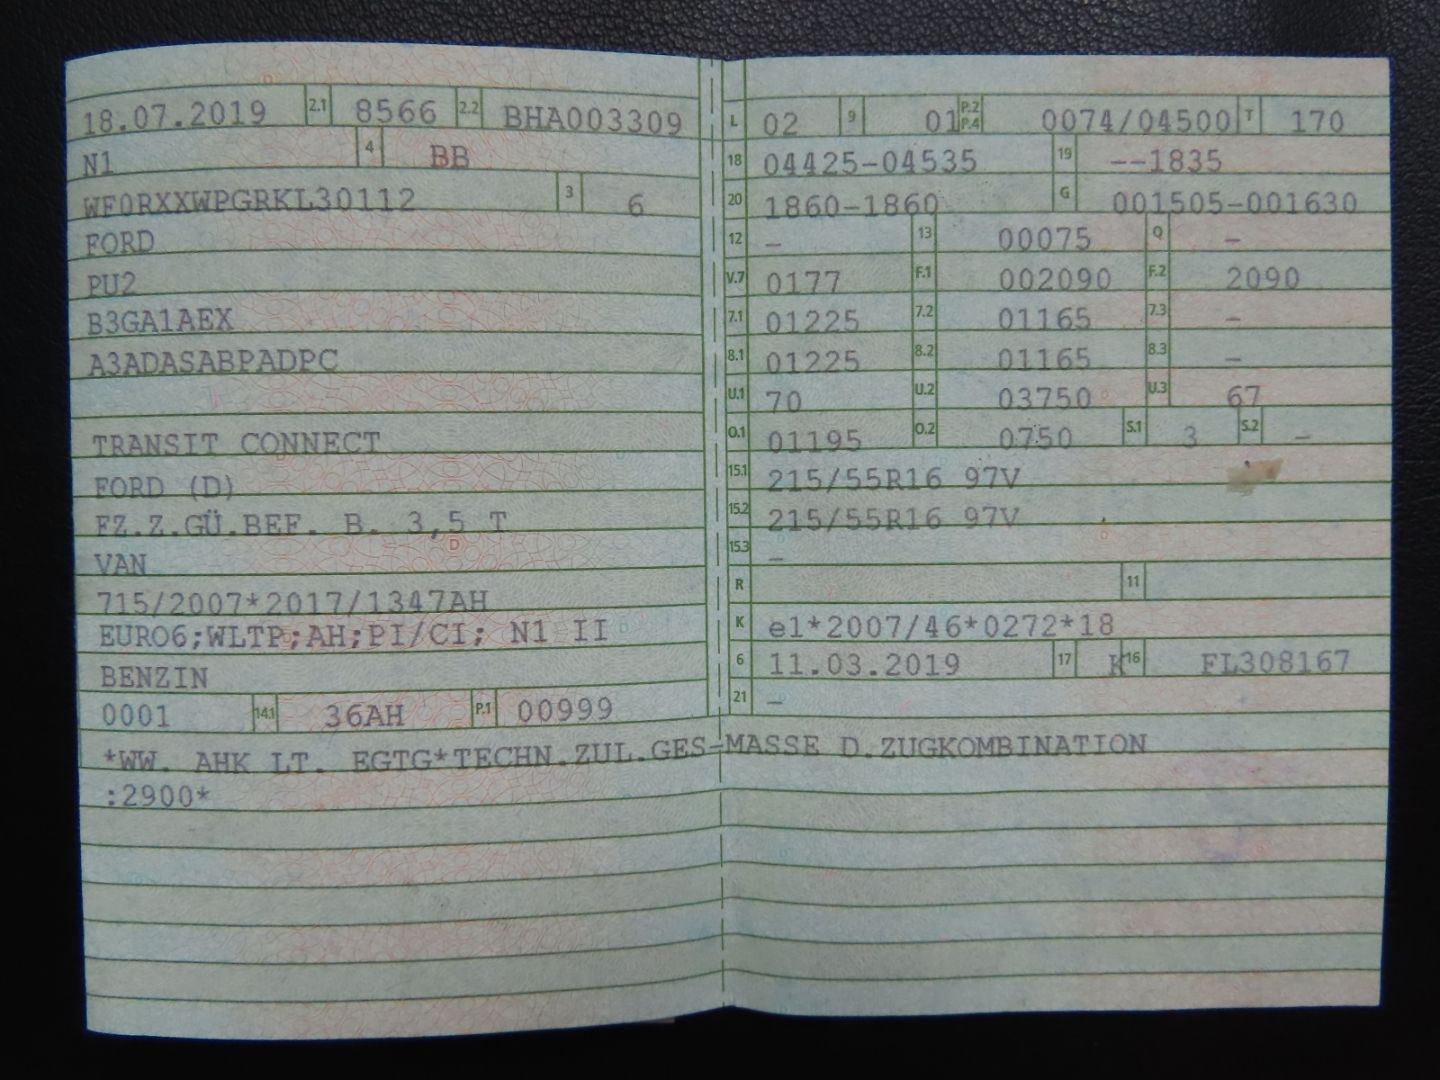 18.07.2019 2.1 8566 2.2 BHA003309
N1 4 BB
WF0RXXWPGRKL30112 3 6
FORD
PU2
B3GA1AEX
A3ADASABPADPC
TRANSIT CONNECT
FORD (D)
FZ.Z.GÜ.BEF. B. 3,5 T
VAN
715/2007*2017/1347AH
EURO6;WLTP;AH;PI/CI; N1 II
BENZIN
0001 14.1 36AH P.1 00999
L 02 9 01 P.2 P.4 0074/04500 T 170
18 04425-04535 19 --1835
20 1860-1860 G 001505-001630
12 – 13 00075 Q –
V.7 0177 F.1 002090 F.2 2090
7.1 01225 7.2 01165 7.3 –
8.1 01225 8.2 01165 8.3 –
U.1 70 U.2 03750 U.3 67
O.1 01195 O.2 0750 S.1 3 S.2 –
15.1 215/55R16 97V
15.2 215/55R16 97V
15.3 –
R 11
K e1*2007/46*0272*18
6 11.03.2019 17 K 16 FL308167
21 –
*WW. AHK LT. EGTG*TECHN.ZUL.GES-MASSE D.ZUGKOMBINATION
:2900*